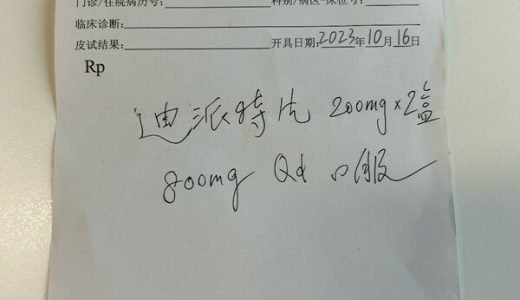 门诊/住院病历号: 科别/病区-床位号:
临床诊断:
皮试结果: 开具日期: 2023年10月16日
Rp
迪派特片 200mg×2盒
800mg Qd 口服